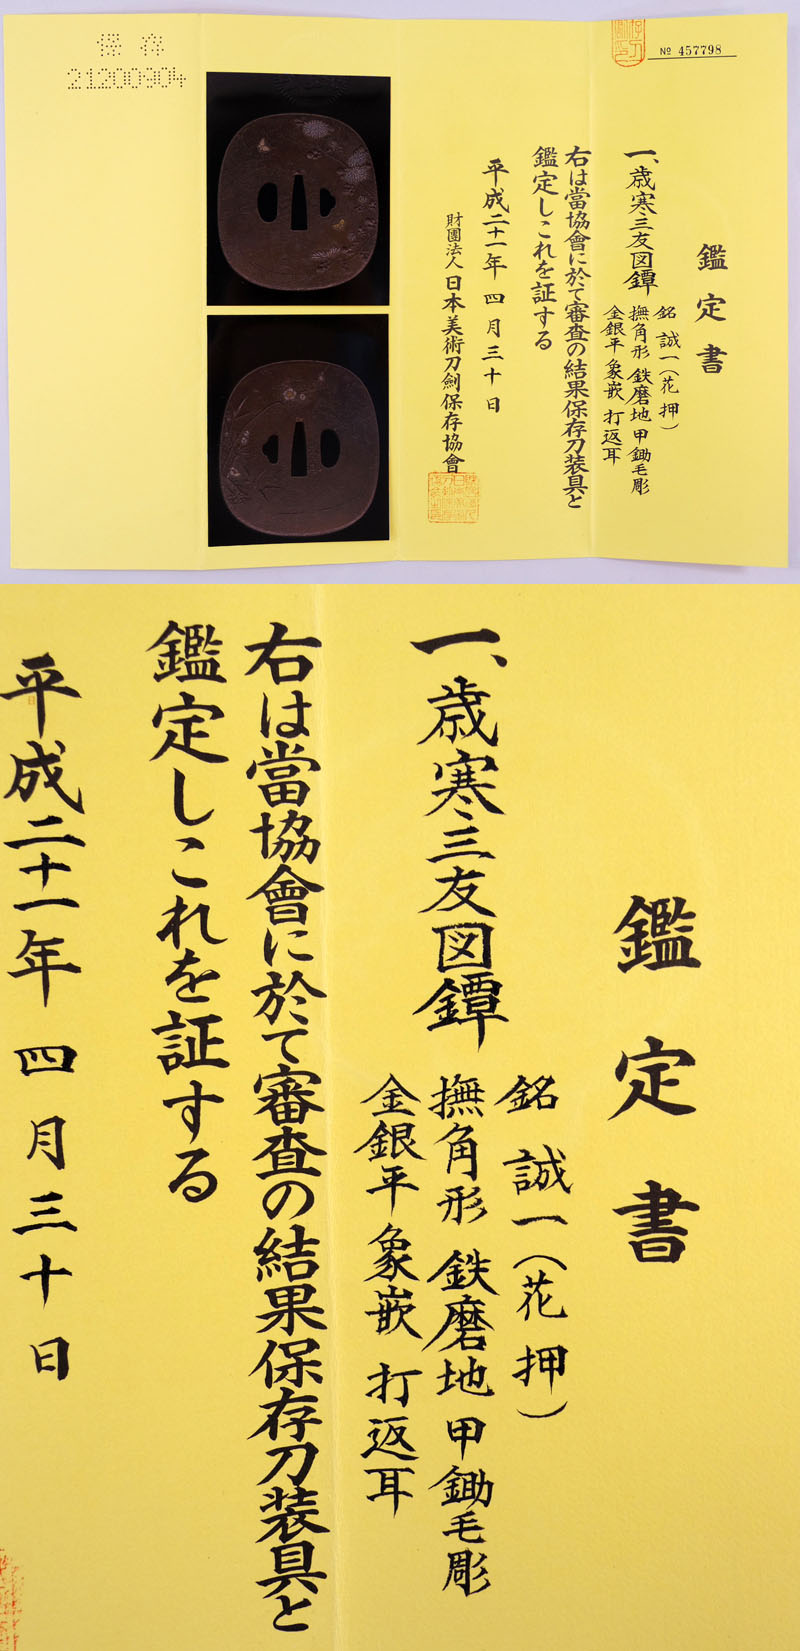 保存
21200904
№ 457798
鑑定書
一、歳寒三友図鐔
銘 誠一(花押)
撫角形 鉄磨地 甲鋤毛彫
金銀平象嵌 打返耳
右は當協會に於て審査の結果保存刀装具と
鑑定しこれを証する
平成二十一年 四月三十日
財團法人 日本美術刀劍保存協會
鑑定書
一、歳寒三友図鐔
銘 誠一(花押)
撫角形 鉄磨地 甲鋤毛彫
金銀平象嵌 打返耳
右は當協會に於て審査の結果保存刀装具と
鑑定しこれを証する
平成二十一年 四月三十日